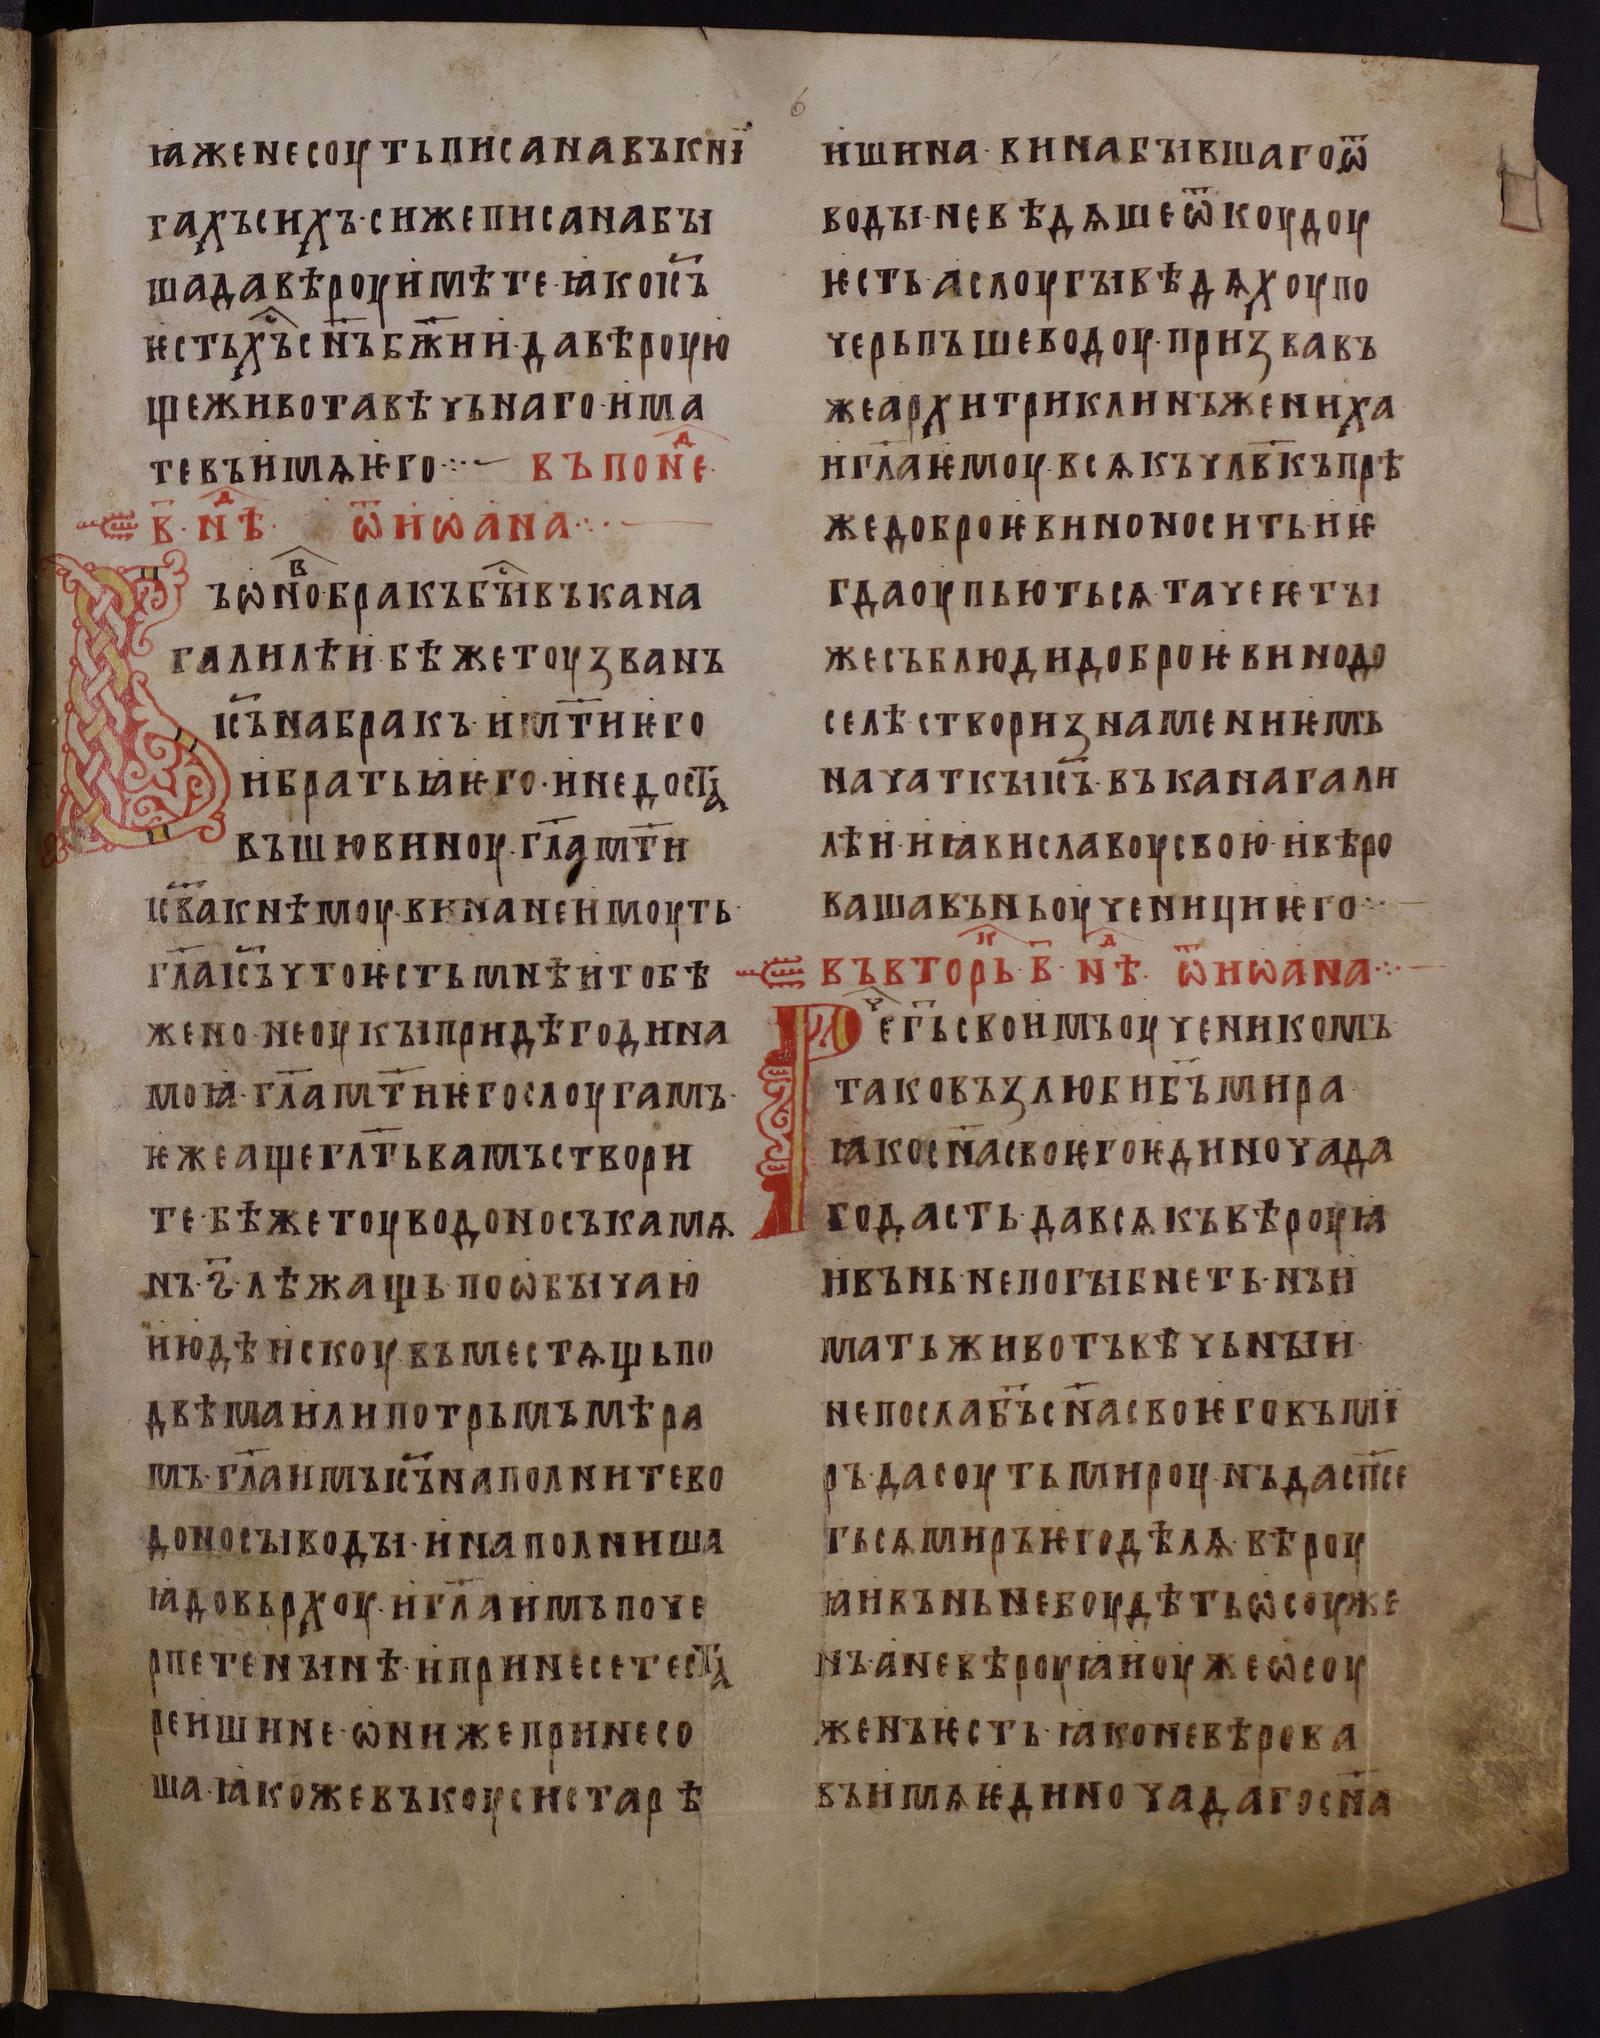 6
ꙗженесоуть писанавъкнї
гахъсихъ· сижеписанабꙑ
шадавѣроуимѣте· ꙗкоі҃съ
ѥстьх҃ъсс҃нъб҃жии· давѣроую
щеживотавѣчьнаго· има
тевъимѧѥго·:·— въпонеⷣ·
в҃· неⷣѣ· ѿиѡана·:·—
Въѡноⷡ· бракъбꙑⷭ҇въкана
галилѣи· бѣжетоузванъ
і҃съ набракъ· им҃тиѥго
ибратьꙗѥго· инедоста
въшювиноу· гл҃ам҃ти
і҃свакнѣмоу· винанеимоуть·
гл҃аі҃съчтоѥстьмнѣитобѣ
жено· неоукꙑпридѣгодина
моꙗ· гл҃ам҃тиѥгослоугамъ·
ѥжеащегл҃тьвамъствори
те· бѣжетоуводоносъкамѧ
нъ· ѕ҃· лѣжащь· поѡбꙑчаю
июдѣискоу· въместѧщьпо
двѣмаилипотрьмъмѣра
мъ· гл҃аимъі҃съ наполнитево
доносꙑводꙑ· инаполниша
ꙗдовьрхоу· игл҃аимъпоче
рпетенꙑнѣ· ипринесетеста
реишине· ѡнижепринесо
ша· ꙗкожевъкоусистарѣ
ишина· винабꙑвшагоѿ
водꙑ· невѣдѧшеѿкоудоу
ѥсть· аслоугꙑвѣдѧхоупо
черьпъшеводоу· призвавъ
жеархитриклинъжениха
игл҃аѥмоу· всѧкъчл҃вкъпрѣ
жедоброѥвиноноситьиѥ
гдаоупьютьсѧ· тачеѥтꙑ
жесъблюдидоброѥвинодо
селѣ· створизнамениѥмь
начаткꙑі҃съ· въканагали
лѣи· иꙗвиславоусвою· ивѣро
вашавъньоученициѥго·:·—
въвторьⷦ· в҃· неⷣѣ· ѿиѡана·:·—
Реⷱ҇г҃ьсвоимъоученикомъ
таковъзлюбиб҃ъмира
ꙗкос҃насвоѥгоѥдиночада
годасть· давсѧкъвѣроуꙗ
ивънь· непогꙑбнеть· нъи
матьживотъвѣчьнꙑи·
непослаб҃ъс҃насвоѥговъмі
ръ· дасоутьмироу· нъдасп҃се
тьсѧмиръѥгодѣлѧ· вѣроу
ꙗивъньнебоудѣтьѡсоуже
нъ· аневѣроуꙗиоужеѡсоу
женъѥсть· ꙗконевѣрова
въимѧѥдиночадагос҃на